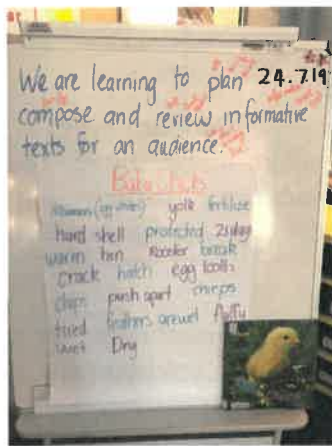 We are learning to plan 24.7.19
compose and review informative
texts for an audience.
Baby chicks
yolk fertilise
hard shell protected 21 days
warm hen Rooster break
crack hatch egg tooth
chips push apart cheeps
tired feathers are wet fluffy
wet Dry